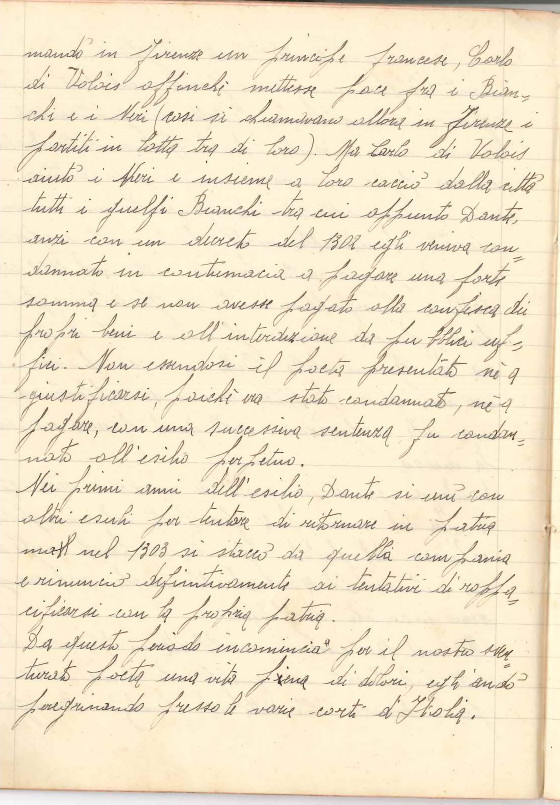 mandò in Firenze un principe francese, Carlo
di Valois affinchè mettesse pace fra i Bian=
chi e i Neri (così si chiamavano allora in Firenze i
partiti in lotta tra di loro). Ma Carlo di Valois
aiutò i Neri e insieme a loro cacciò dalla città
tutti i guelfi Bianchi tra cui appunto Dante,
anzi con un decreto del 1302 egli veniva con=
dannato in contumacia a pagare una forte
somma e se non avesse pagato alla confisca dei
propri beni e all'interdizione da pubblici uf=
fici. Non essendosi il poeta presentato nè a
giustificarsi, poichè era stato condannato, nè a
pagare, con una successiva sentenza fu condan=
nato all'esilio perpetuo.
Nei primi anni dell'esilio, Dante si unì con
altri esuli per tentare di ritornare in patria
ma nel 1303 si staccò da quella compania
e rinunciò definitivamente ai tentativi di rappa=
cificarsi con la propria patria.
Da questo periodo incomincia per il nostro sven=
turato poeta una vita piena di dolori, egli andò
peregrinando presso le varie corti d'Italia.